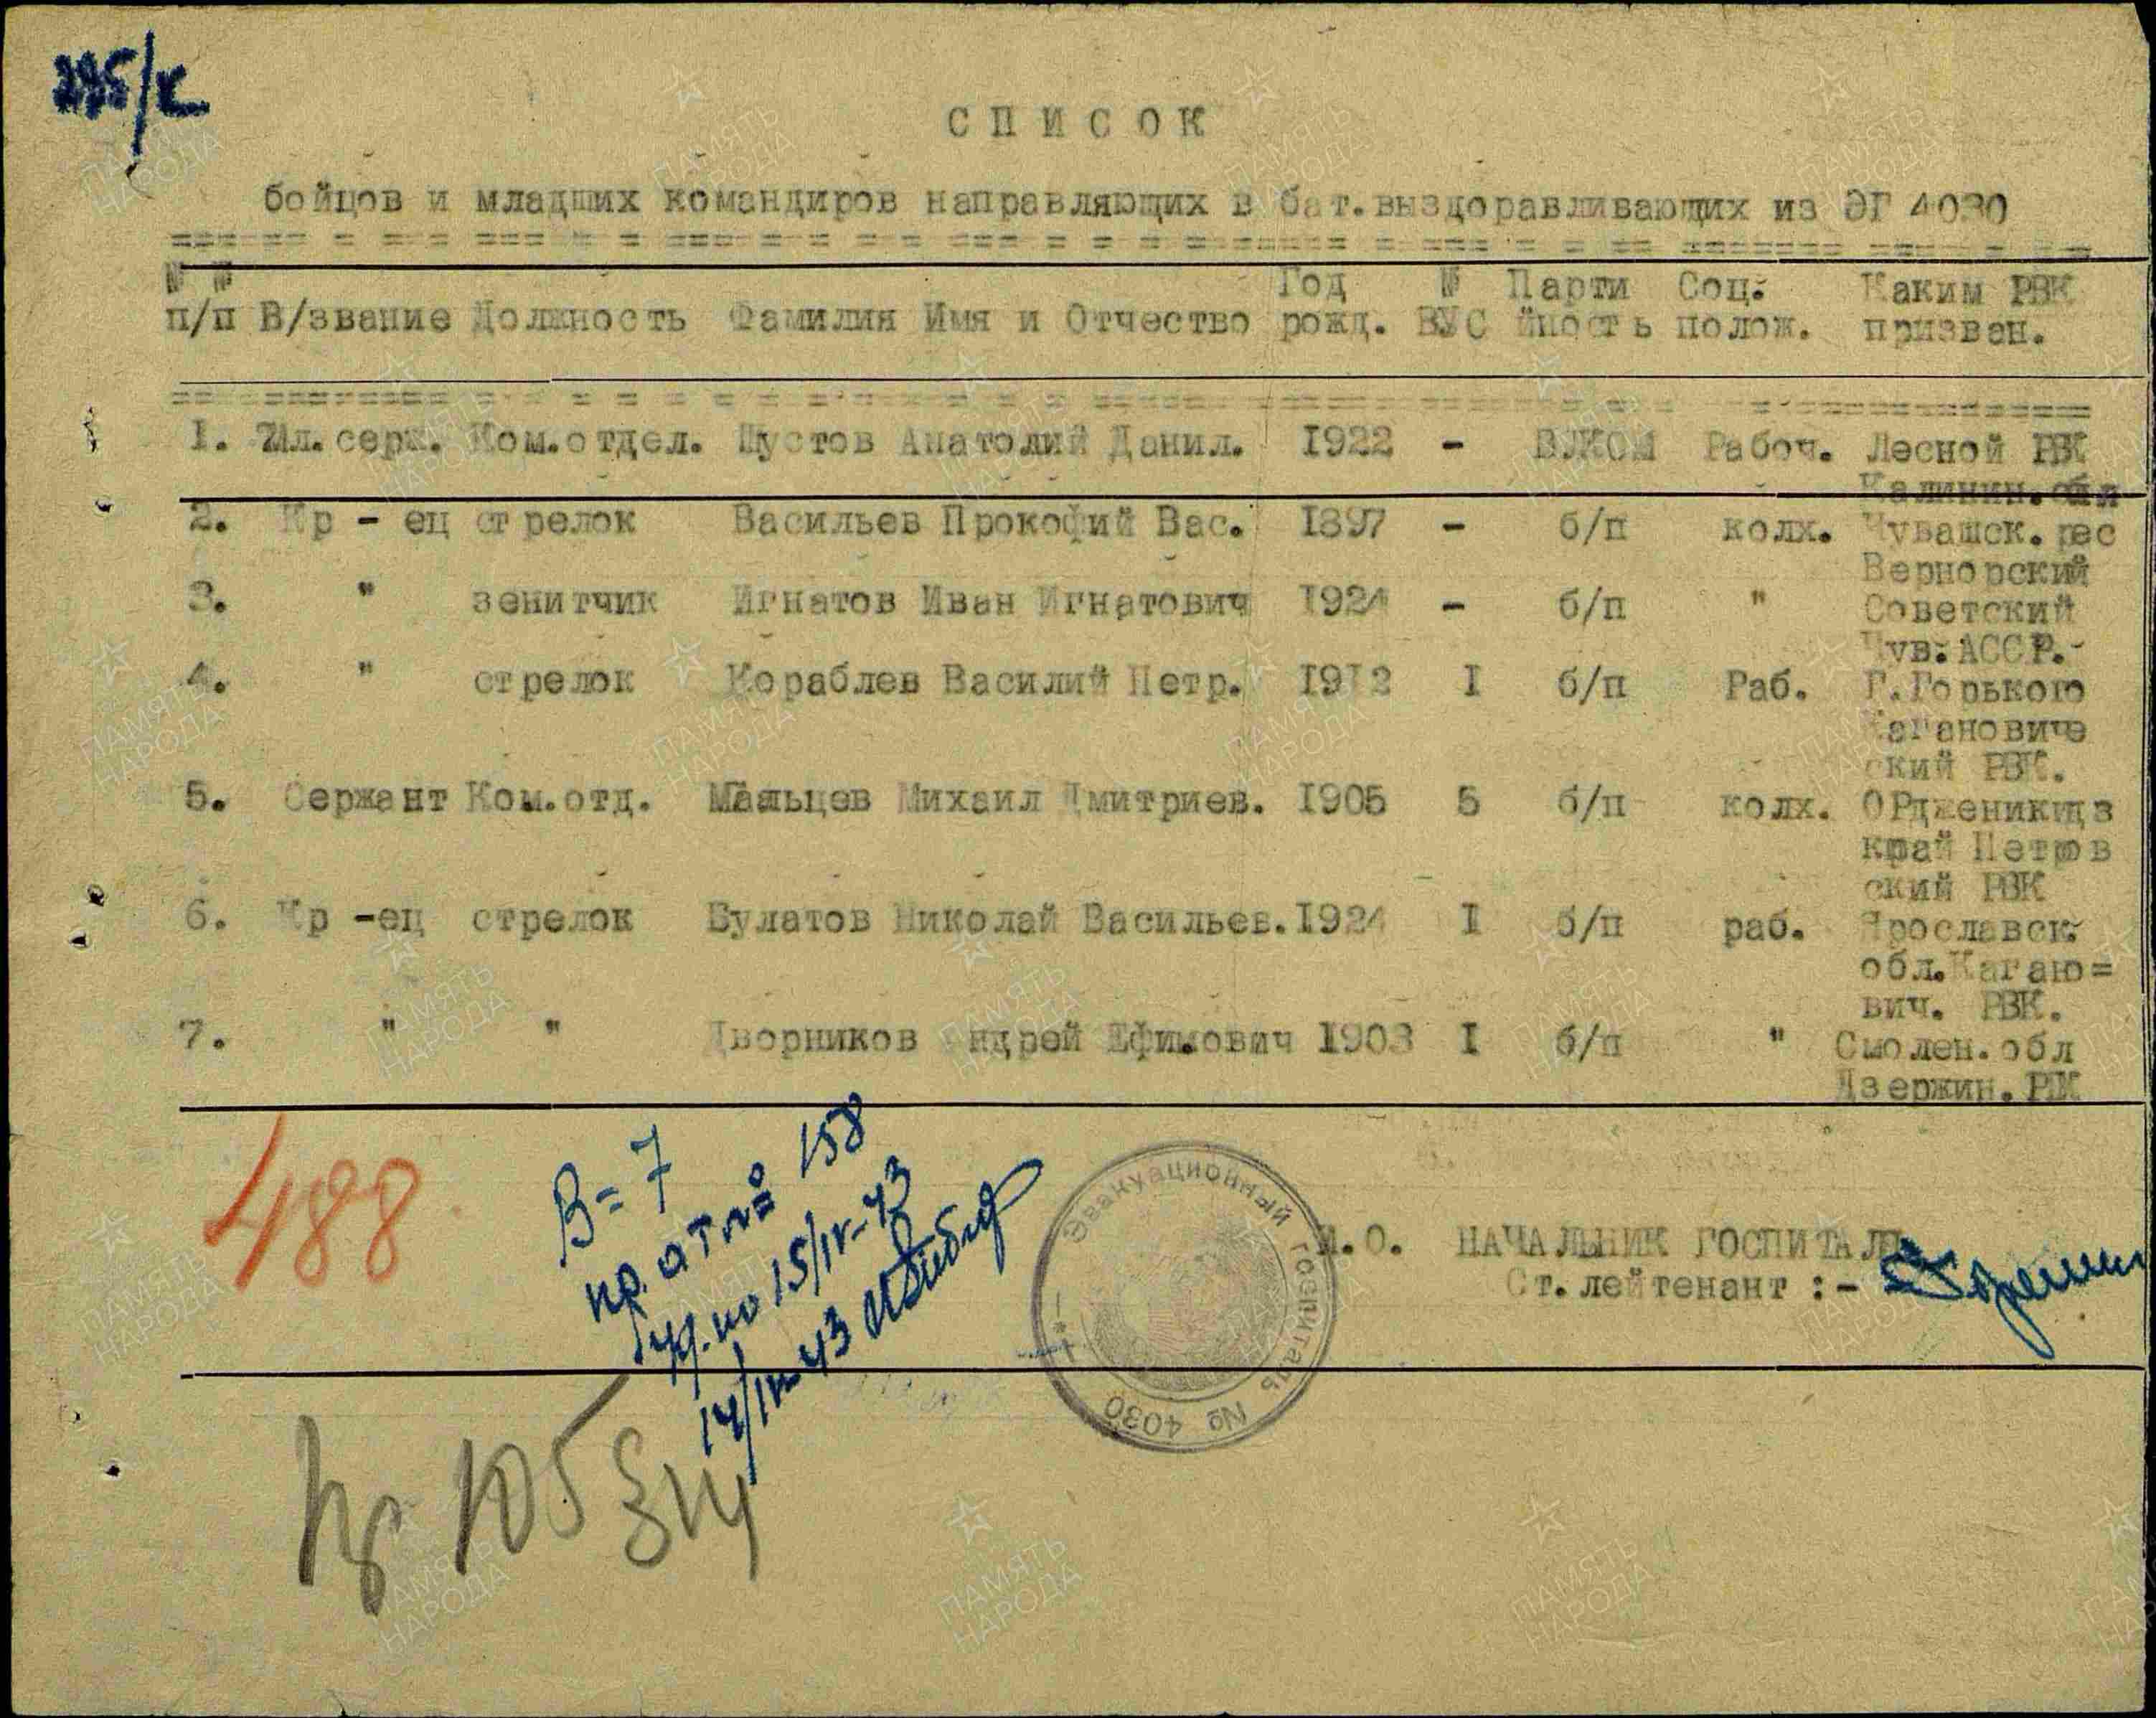 295/к
СПИСОК
бойцов и младших командиров направляющих в бат.выздоравливающих из ЭГ 4030
№ № Год № Парти Соц. Каким РВК
п/п В/звание Должность Фамилия Имя и Отчество рожд. ВУС йность полож. призван.
1. Мл.серж. Ком.отдел. Шустов Анатолий Данил. 1922 - ВЛКСМ Рабоч. Лесной РВК
Калинин.обл
2. Кр - ец стрелок Васильев Прокофий Вас. 1897 - б/п колх. Чувашск.рес
3. " зенитчик Игнатов Иван Игнатович 1924 - б/п " Советский
Чув.АССР.-
4. " стрелок Кораблев Василий Петр. 1912 I б/п Раб. Г.Горького
Кагановиче
ский РВК.
5. Сержант Ком.отд. Мальцев Михаил Дмитриев. 1905 5 б/п колх. ОРдженикидз
край Петров
ский РВК
6. Кр -ец стрелок Булатов Николай Васильев. 1924 I б/п раб. Ярославск.
обл.Кагано=
вич. РВК.
7. " " Дворников Андрей Ефимович 1903 I б/п " Смолен.обл
Дзержин.РВК
488
В = 7
пр. ат № 158
уд. по 15/IV-43
14/IV-43
И.О. НАЧАЛЬНИК ГОСПИТАЛЯ
Ст.лейтенант :-
Эвакуационный госпиталь № 4030
Пр 105
ПАМЯТЬ
НАРОДА